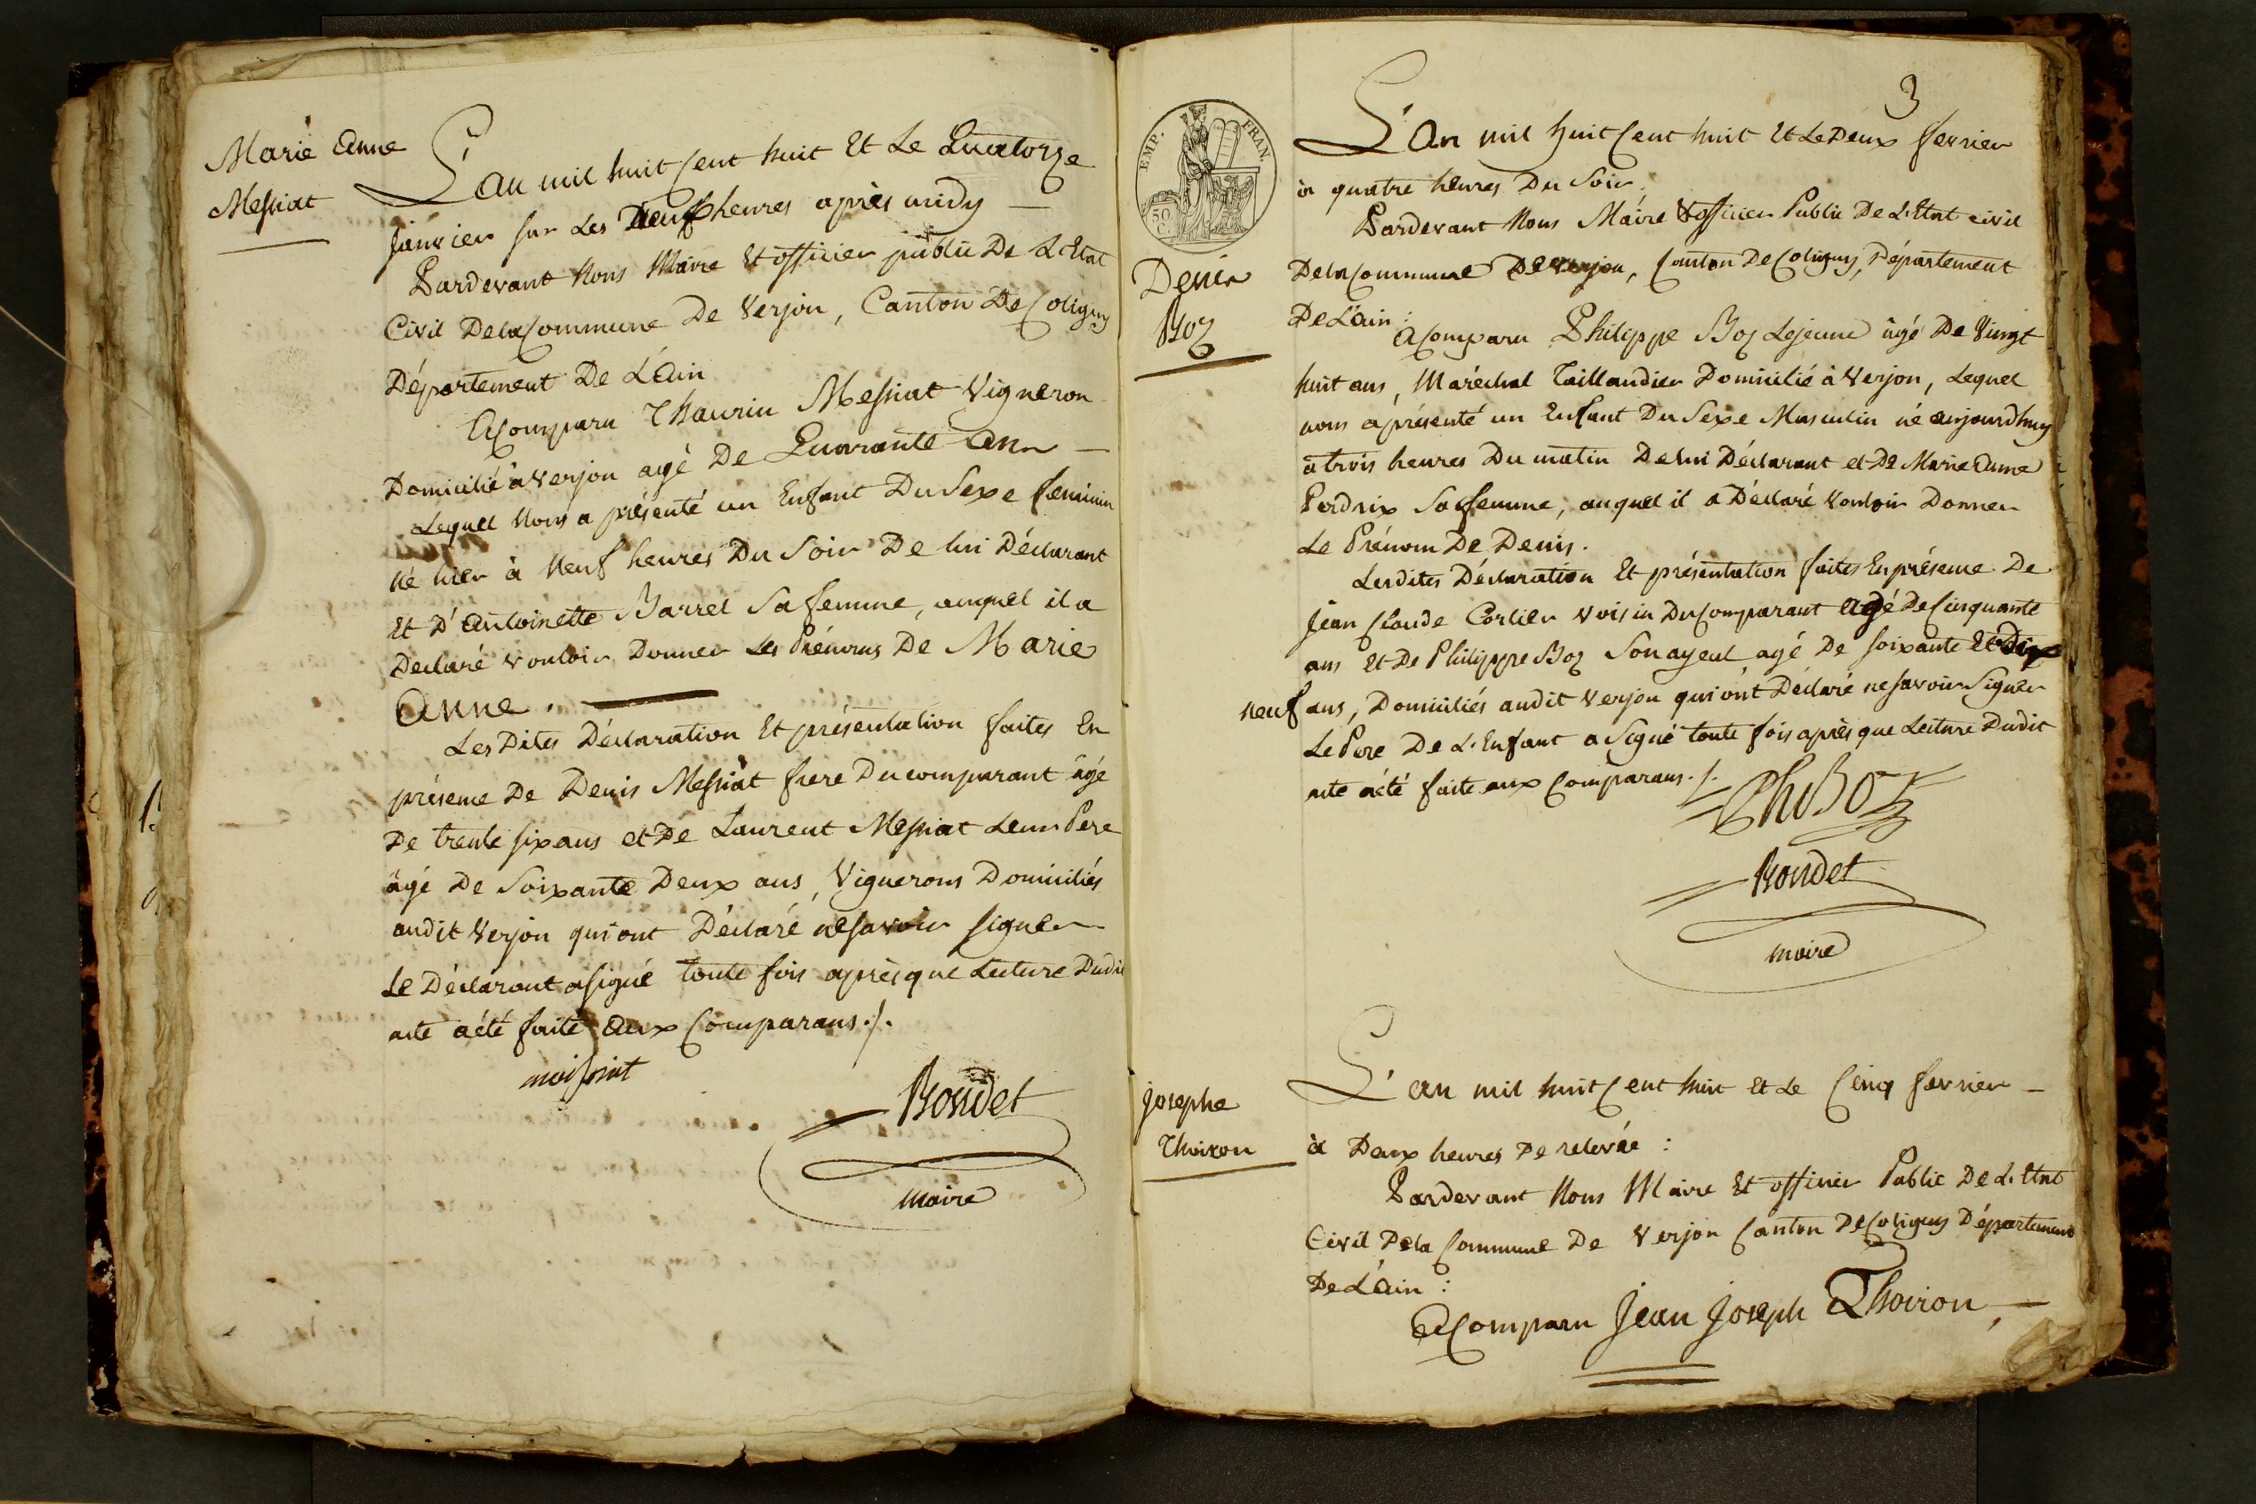 Marie Anne
Messiat
L'an mil huit Cent huit Et Le Quatorze
janvier sur Les Deux heures après midy —
Pardevant Nous Maire Et officier public De L'Etat
Civil De la Commune De Verjon, Canton De Coligny
Département De L'Ain
A Comparu Thaurin Messiat Vigneron
Domicilié à Verjon agé De Quarante Ans —
Lequel Nous a présenté un Enfant Du Sexe feminin
Né hier à Neuf heures Du Soir De lui Déclarant
Et D'Antoinette Barrel Sa femme, auquel il a
Declaré vouloir Donner Les Prénoms De Marie
Anne. —
Les Dites Déclaration Et présentation faites En
présence De Denis Messiat frere Du comparant âgé
De trente six ans et De Laurent Messiat Leur Pere
âgé De Soixante Deux ans, Vignerons Domiciliés
audit Verjon qui ont Déclaré ne savoir signer
Le Déclarant a signé toute fois après que Lecture Dudit
acte a été faite Aux Comparans ./.
Bondet
maire
3
EMP. FRAN.
50 C.
Denis
Boz
L'An mil huit Cent huit Et Le Deux fevrier
à quatre heures Du Soir
Pardevant Nous Maire & officier Public De L'Etat civil
De la Commune De Verjon, Canton De Coligny, Département
De L'Ain :
A Comparu Philippe Boz Lejeune âgé De Vingt
huit ans, Maréchal Taillandier Domicilié à Verjon, Lequel
nous a présenté un Enfant Du Sexe Masculin né aujourdhuy
a trois heures Du matin De lui Déclarant et De Marie Anne
Perdrix Sa femme, auquel il a Déclaré Vouloir Donner
Le Prénom De Denis.
Lesdites Déclaration Et présentation faites En présence De
Jean Claude Corlier voisin Du Comparant Agé De Cinquante
ans Et De Philippe Boz Son ayeul agé De soixante Et Dix
neuf ans, Domiciliés audit Verjon qui ont Déclaré ne savoir Signer
Le Pere De L'Enfant a Signé toute fois après que Lecture Dudit
acte a été faite aux Comparans ./.
Ph Boz
Bondet
maire
Josephe
Thoiron
L'an mil huit Cent huit et Le Cinq fevrier —
à Deux heures De relevée :
Pardevant Nous Maire Et officier Public De L'Etat
Civil De la Commune De Verjon Canton De Coligny Département
De L'Ain :
A Comparu Jean Joseph Thoiron, —